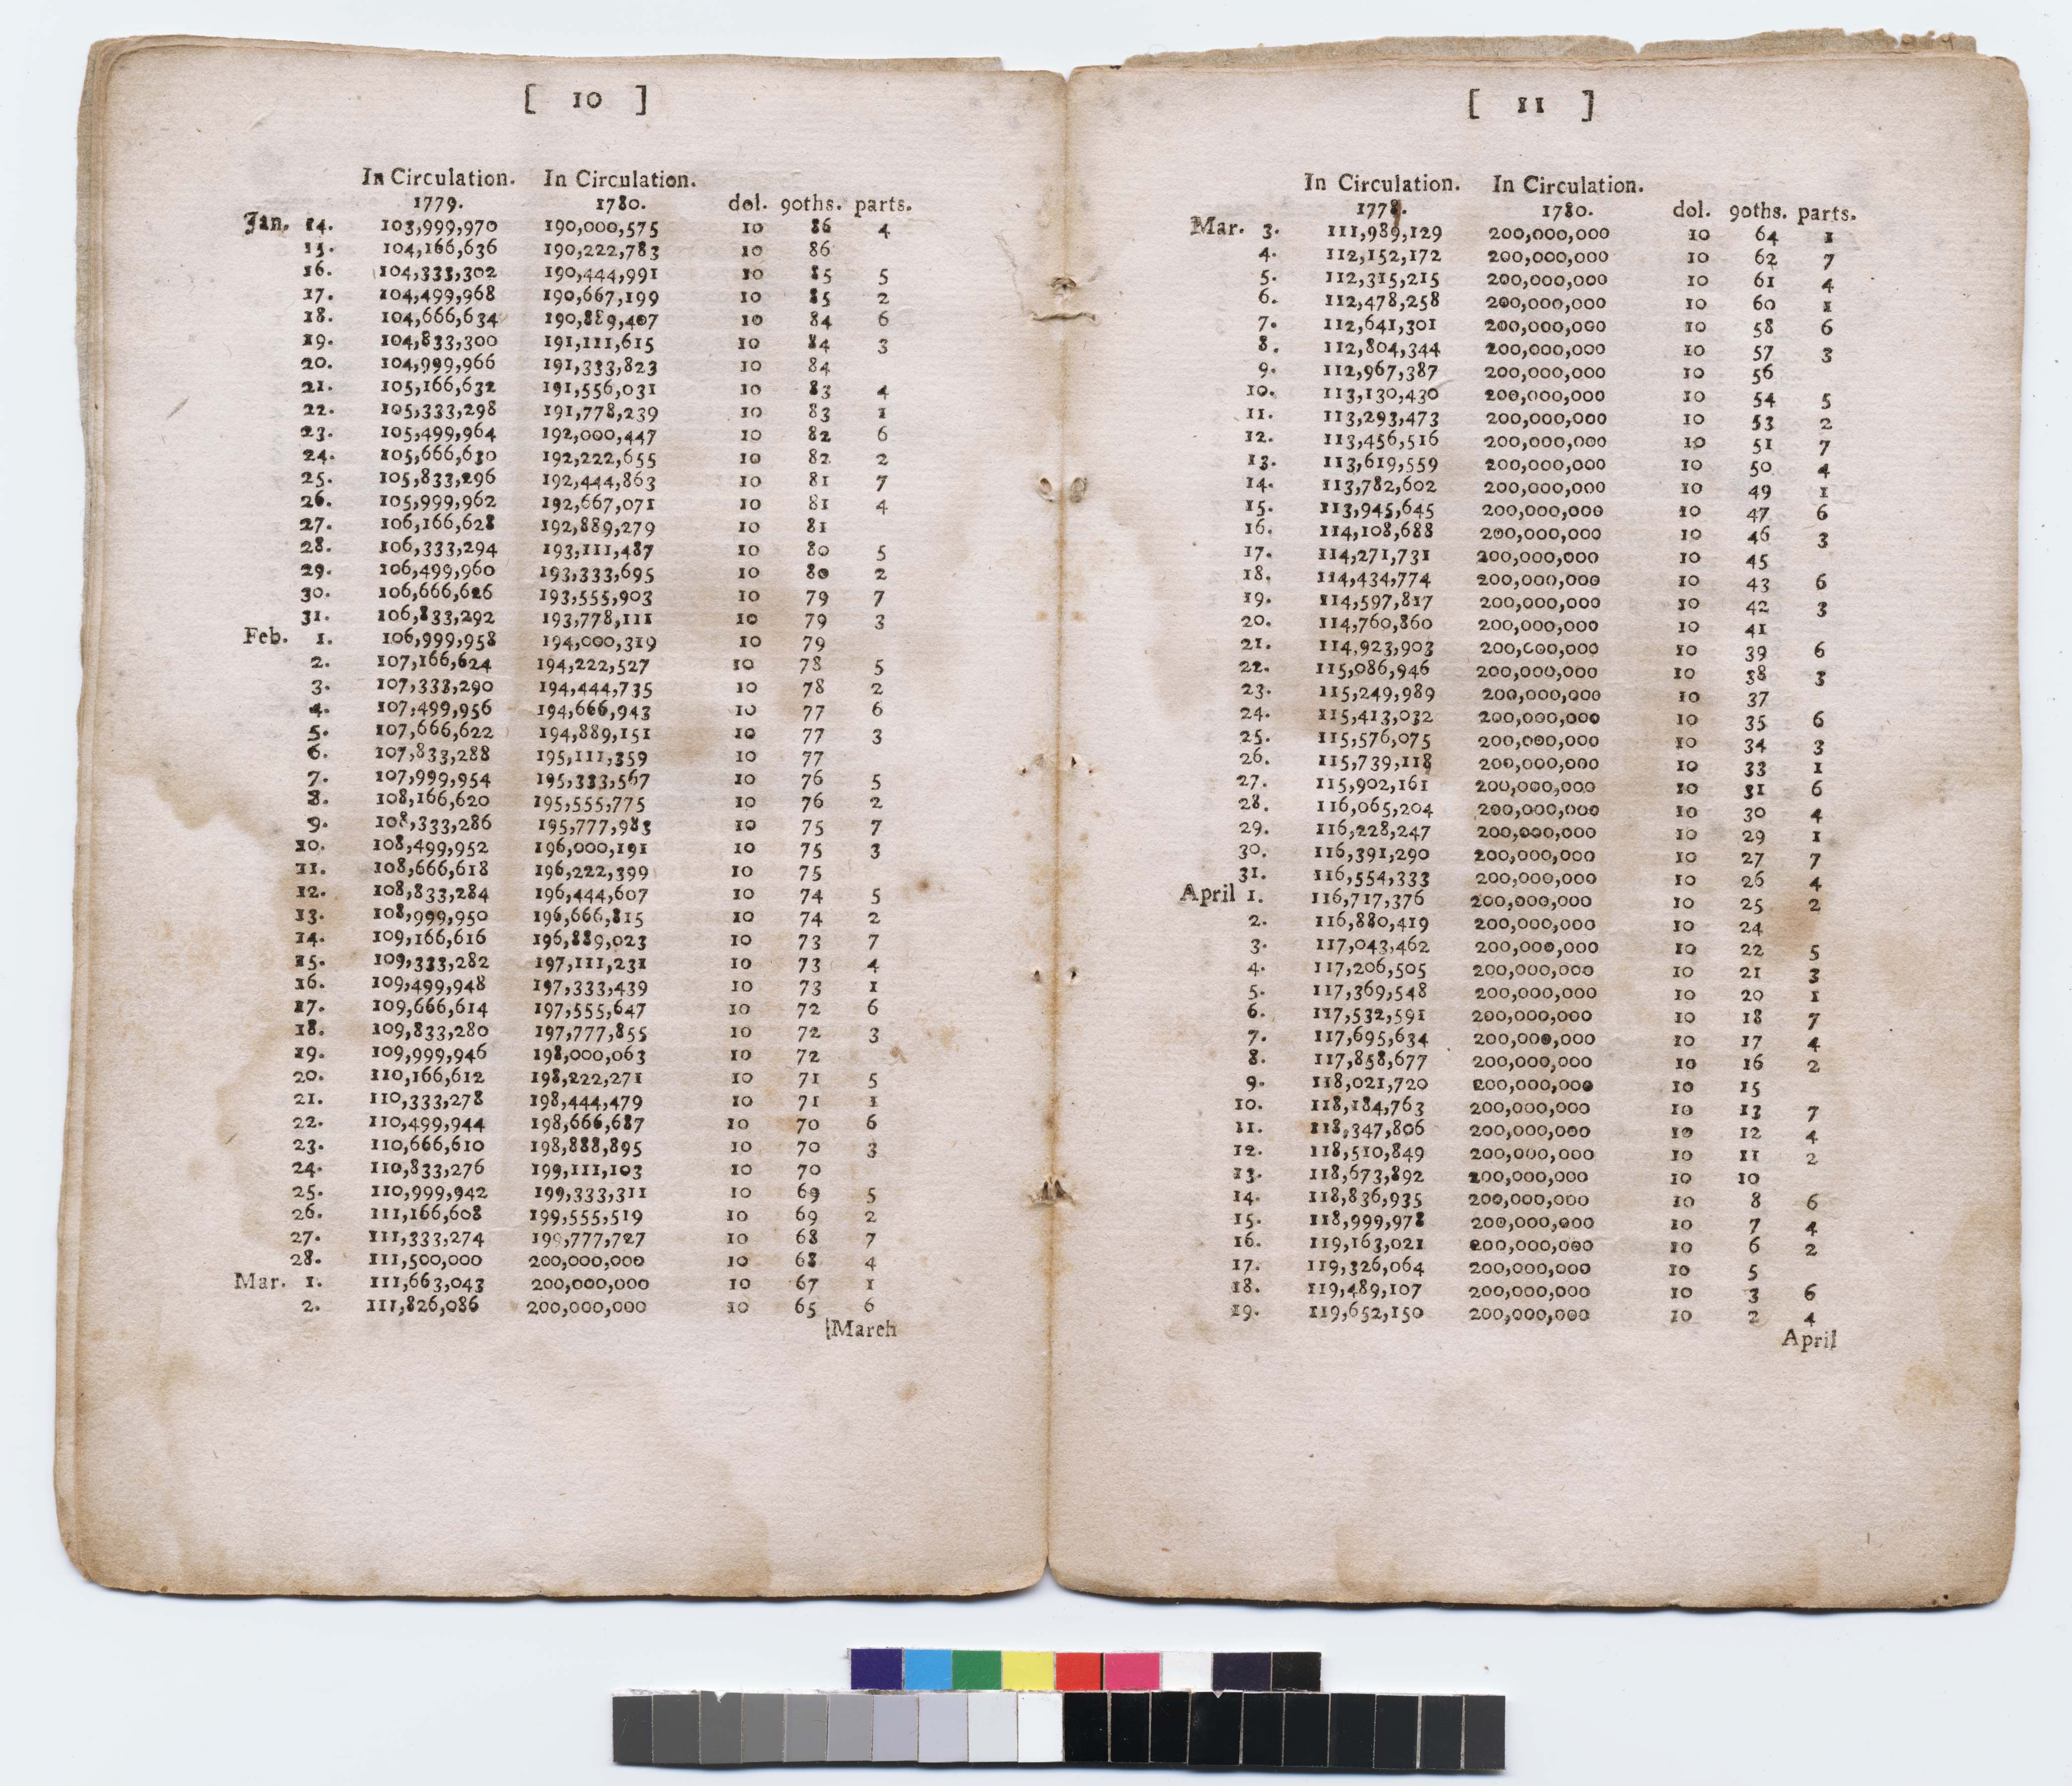 [ 10 ]
In Circulation. In Circulation.
1779. 1780. dol. 90ths. parts.
Jan. 14. 103,999,970 190,000,575 10 86 4
15. 104,166,636 190,222,783 10 86
16. 104,333,302 190,444,991 10 85 5
17. 104,499,968 190,667,199 10 85 2
18. 104,666,634 190,889,407 10 84 6
19. 104,833,300 191,111,615 10 84 3
20. 104,999,966 191,333,823 10 84
21. 105,166,632 191,556,031 10 83 4
22. 105,333,298 191,778,239 10 83 1
23. 105,499,964 192,000,447 10 82 6
24. 105,666,630 192,222,655 10 82 2
25. 105,833,296 192,444,863 10 81 7
26. 105,999,962 192,667,071 10 81 4
27. 106,166,628 192,889,279 10 81
28. 106,333,294 193,111,487 10 80 5
29. 106,499,960 193,333,695 10 80 2
30. 106,666,626 193,555,903 10 79 7
31. 106,833,292 193,778,111 10 79 3
Feb. 1. 106,999,958 194,000,319 10 79
2. 107,166,624 194,222,527 10 78 5
3. 107,333,290 194,444,735 10 78 2
4. 107,499,956 194,666,943 10 77 6
5. 107,666,622 194,889,151 10 77 3
6. 107,833,288 195,111,359 10 77
7. 107,999,954 195,333,567 10 76 5
8. 108,166,620 195,555,775 10 76 2
9. 108,333,286 195,777,983 10 75 7
10. 108,499,952 196,000,191 10 75 3
11. 108,666,618 196,222,399 10 75
12. 108,833,284 196,444,607 10 74 5
13. 108,999,950 196,666,815 10 74 2
14. 109,166,616 196,889,023 10 73 7
15. 109,333,282 197,111,231 10 73 4
16. 109,499,948 197,333,439 10 73 1
17. 109,666,614 197,555,647 10 72 6
18. 109,833,280 197,777,855 10 72 3
19. 109,999,946 198,000,063 10 72
20. 110,166,612 198,222,271 10 71 5
21. 110,333,278 198,444,479 10 71 1
22. 110,499,944 198,666,687 10 70 6
23. 110,666,610 198,888,895 10 70 3
24. 110,833,276 199,111,103 10 70
25. 110,999,942 199,333,311 10 69 5
26. 111,166,608 199,555,519 10 69 2
27. 111,333,274 199,777,727 10 68 7
28. 111,500,000 200,000,000 10 68 4
Mar. 1. 111,663,043 200,000,000 10 67 1
2. 111,826,086 200,000,000 10 65 6
March
[ 11 ]
In Circulation. In Circulation.
1778. 1780. dol. 90ths. parts.
Mar. 3. 111,989,129 200,000,000 10 64 1
4. 112,152,172 200,000,000 10 62 7
5. 112,315,215 200,000,000 10 61 4
6. 112,478,258 200,000,000 10 60 1
7. 112,641,301 200,000,000 10 58 6
8. 112,804,344 200,000,000 10 57 3
9. 112,967,387 200,000,000 10 56
10. 113,130,430 200,000,000 10 54 5
11. 113,293,473 200,000,000 10 53 2
12. 113,456,516 200,000,000 10 51 7
13. 113,619,559 200,000,000 10 50 4
14. 113,782,602 200,000,000 10 49 1
15. 113,945,645 200,000,000 10 47 6
16. 114,108,688 200,000,000 10 46 3
17. 114,271,731 200,000,000 10 45
18. 114,434,774 200,000,000 10 43 6
19. 114,597,817 200,000,000 10 42 3
20. 114,760,860 200,000,000 10 41
21. 114,923,903 200,000,000 10 39 6
22. 115,086,946 200,000,000 10 38 3
23. 115,249,989 200,000,000 10 37
24. 115,413,032 200,000,000 10 35 6
25. 115,576,075 200,000,000 10 34 3
26. 115,739,118 200,000,000 10 33 1
27. 115,902,161 200,000,000 10 31 6
28. 116,065,204 200,000,000 10 30 4
29. 116,228,247 200,000,000 10 29 1
30. 116,391,290 200,000,000 10 27 7
31. 116,554,333 200,000,000 10 26 4
April 1. 116,717,376 200,000,000 10 25 2
2. 116,880,419 200,000,000 10 24
3. 117,043,462 200,000,000 10 22 5
4. 117,206,505 200,000,000 10 21 3
5. 117,369,548 200,000,000 10 20 1
6. 117,532,591 200,000,000 10 18 7
7. 117,695,634 200,000,000 10 17 4
8. 117,858,677 200,000,000 10 16 2
9. 118,021,720 200,000,000 10 15
10. 118,184,763 200,000,000 10 13 7
11. 118,347,806 200,000,000 10 12 4
12. 118,510,849 200,000,000 10 11 2
13. 118,673,892 200,000,000 10 10
14. 118,836,935 200,000,000 10 8 6
15. 118,999,978 200,000,000 10 7 4
16. 119,163,021 200,000,000 10 6 2
17. 119,326,064 200,000,000 10 5
18. 119,489,107 200,000,000 10 3 6
19. 119,652,150 200,000,000 10 2 4
April